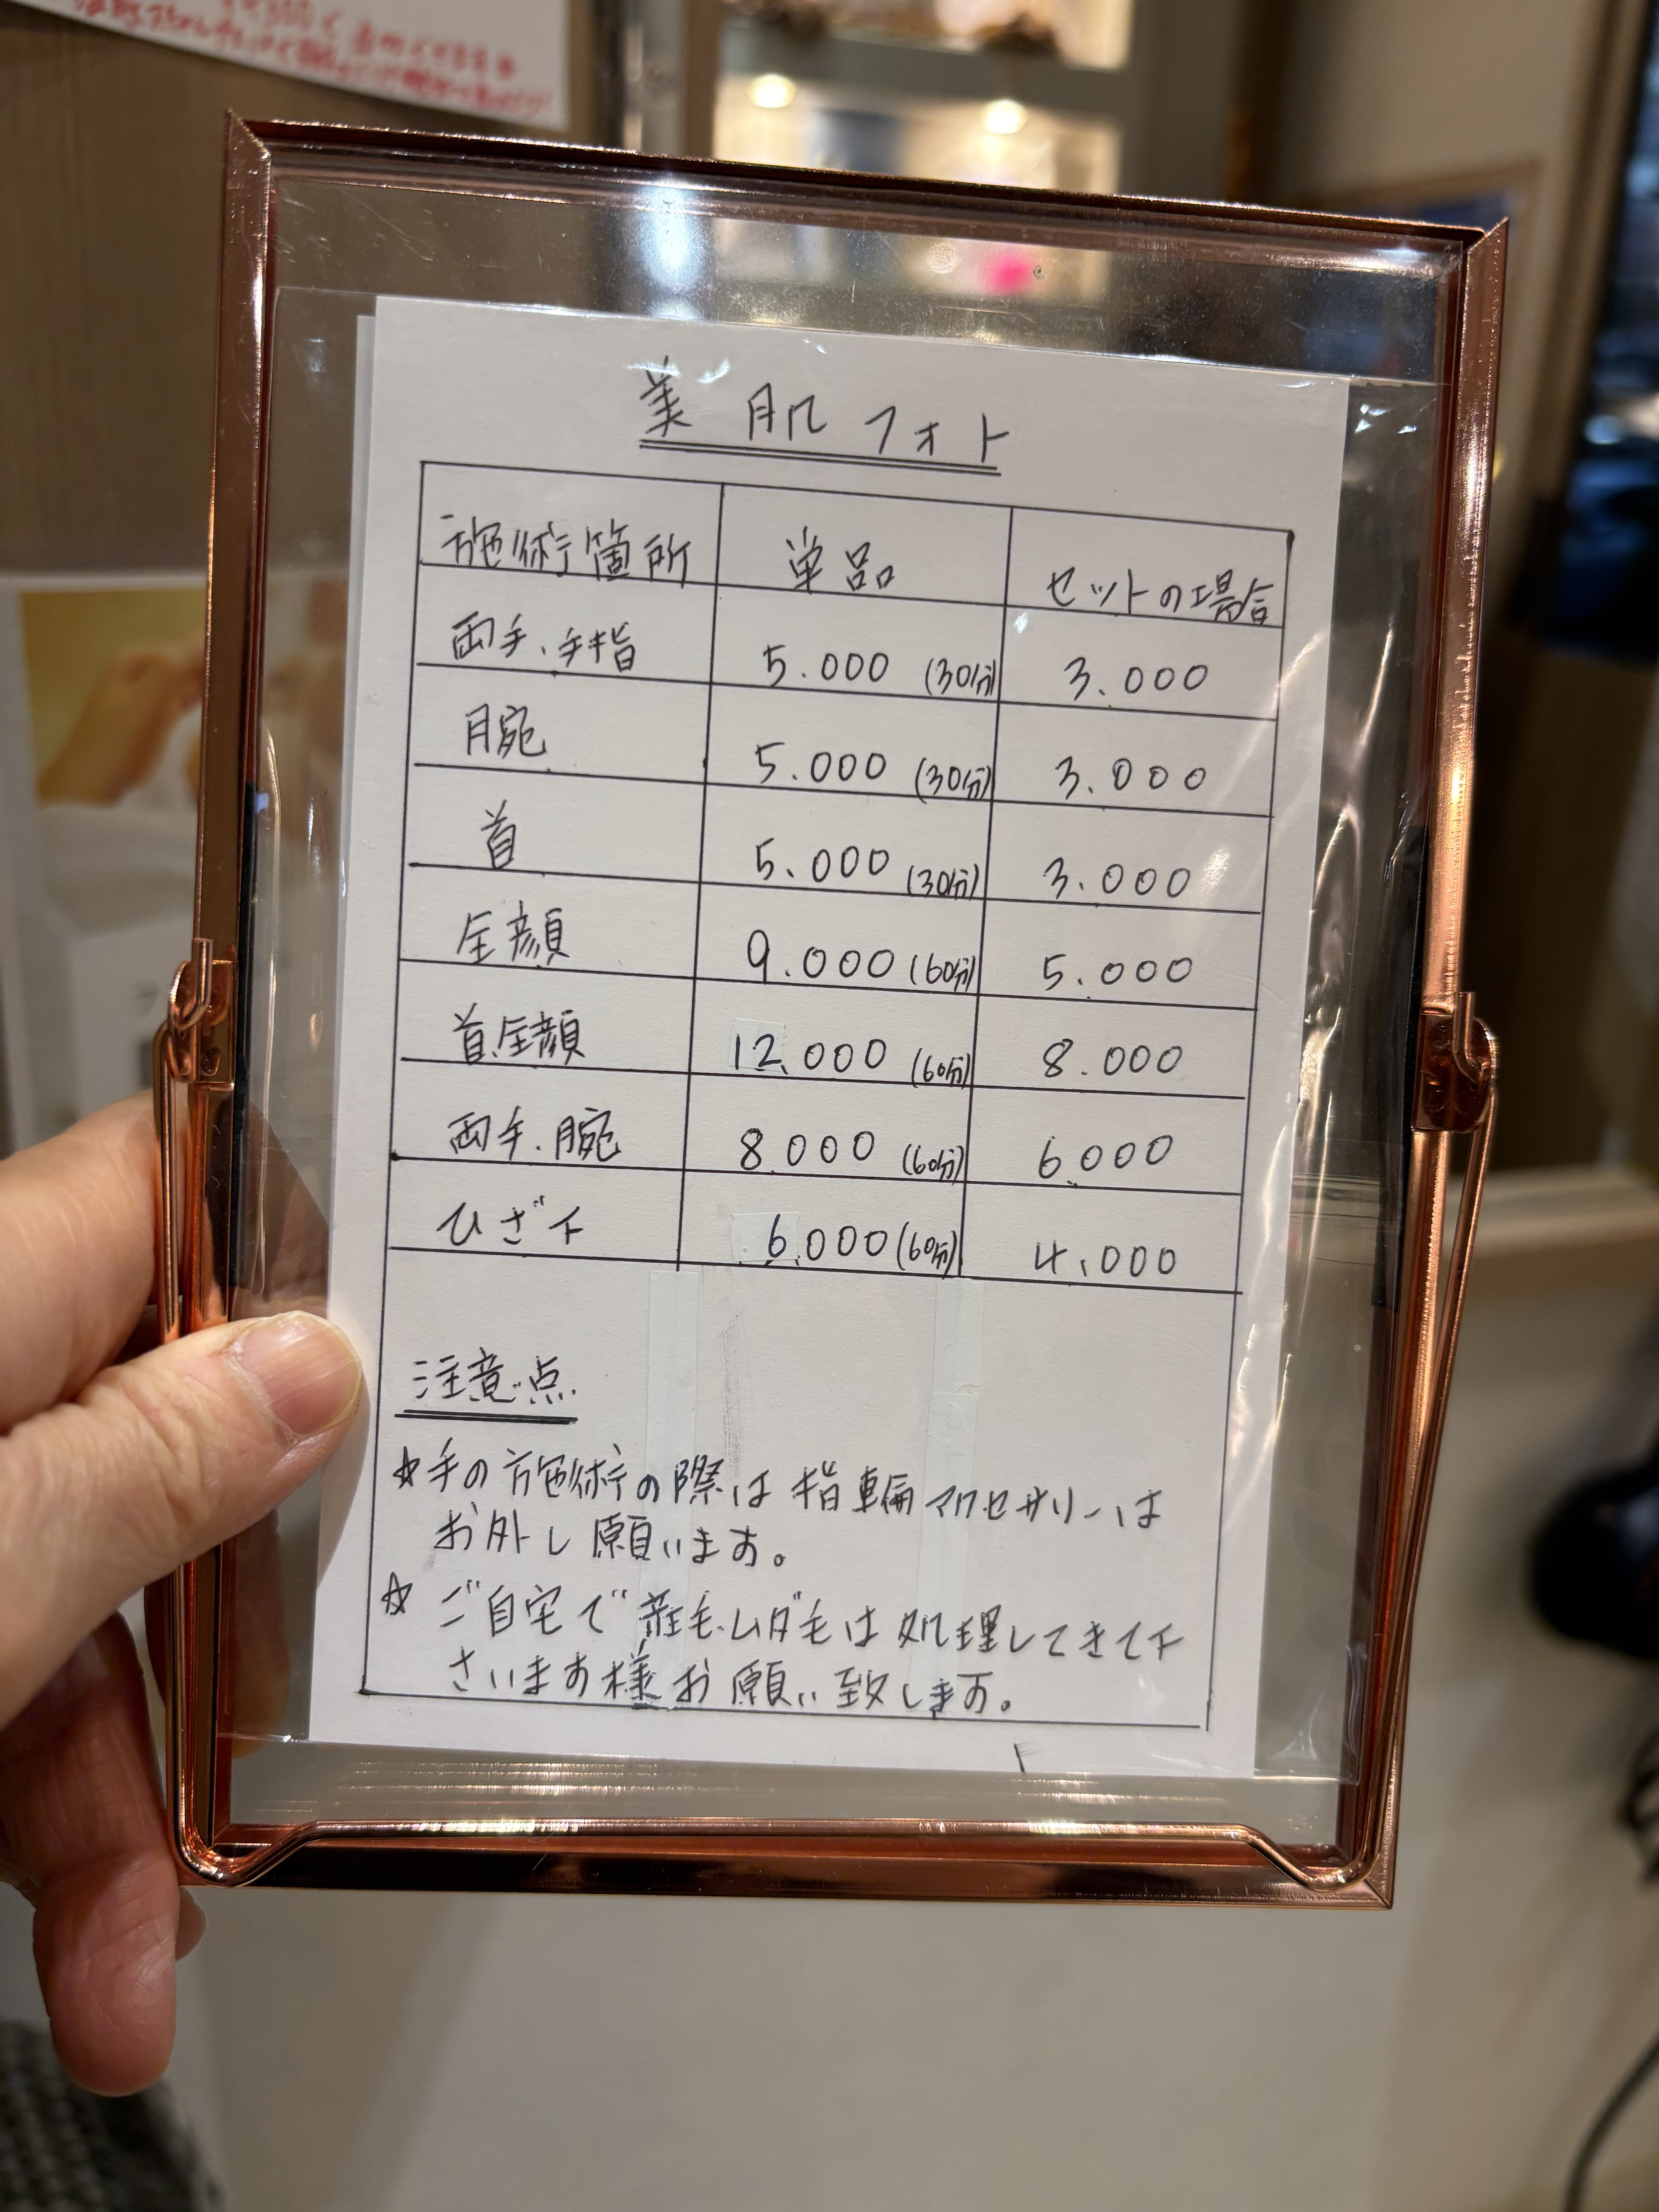 美肌フォト
施術箇所 単品 セットの場合
両手、手指 5.000 (30分) 3.000
腕 5.000 (30分) 3.000
首 5.000 (30分) 3.000
全顔 9.000 (60分) 5.000
首.全顔 12.000 (60分) 8.000
両手.腕 8.000 (60分) 6.000
ひざ下 6.000 (60分) 4.000
注意点
☆手の施術の際は指輪アクセサリーは
お外し願います。
☆ご自宅で産毛.ムダ毛は処理してきて下
さいます様お願い致します。